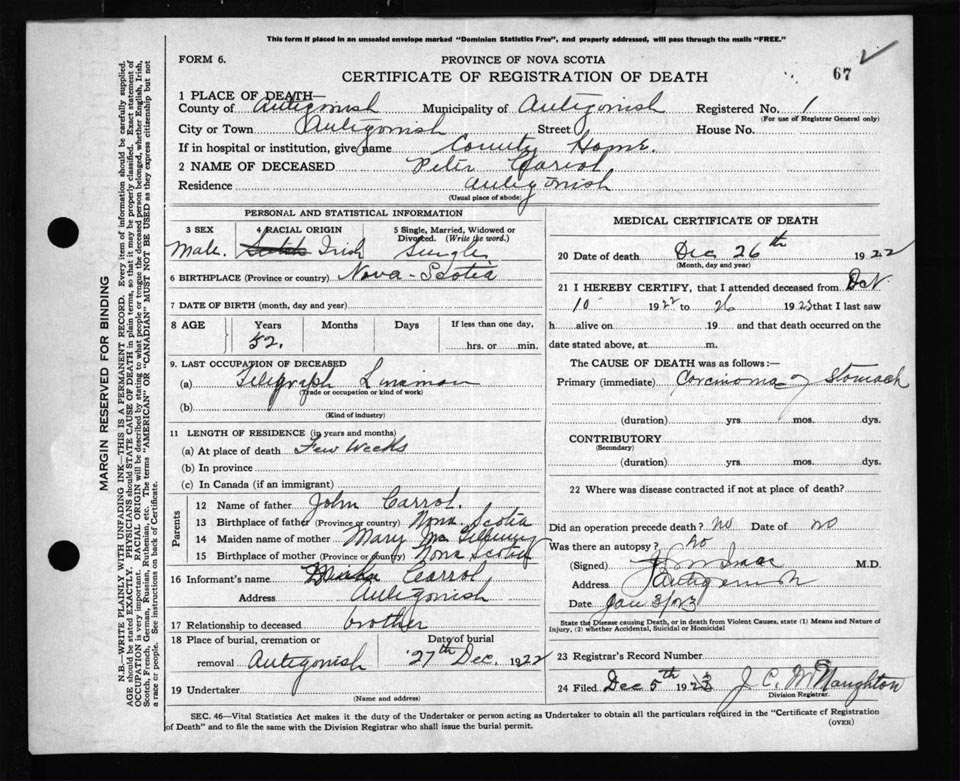 This form if placed in an unsealed envelope marked "Dominion Statistics Free", and properly addressed, will pass through the mails "FREE."
FORM 6.
PROVINCE OF NOVA SCOTIA
CERTIFICATE OF REGISTRATION OF DEATH
67
1 PLACE OF DEATH—
County of Antigonish Municipality of Antigonish Registered No. 1
(For use of Registrar General only)
City or Town Antigonish Street House No.
If in hospital or institution, give name County Home.
2 NAME OF DECEASED Peter Carrol
Residence Antigonish
(Usual place of abode)
PERSONAL AND STATISTICAL INFORMATION
3 SEX 4 RACIAL ORIGIN 5 Single, Married, Widowed or Divorced. (Write the word.)
Male. Scotch Irish Single
6 BIRTHPLACE (Province or country) Nova-Scotia
7 DATE OF BIRTH (month, day and year)
8 AGE Years Months Days If less than one day,
52. hrs. or min.
9. LAST OCCUPATION OF DECEASED
(a) Telegraph Linsman
(Trade or occupation or kind of work)
(b)
(Kind of industry)
11 LENGTH OF RESIDENCE (in years and months)
(a) At place of death Few Weeks
(b) In province
(c) In Canada (if an immigrant)
Parents
12 Name of father John Carrol.
13 Birthplace of father (Province or country) Nova Scotia
14 Maiden name of mother Mary
15 Birthplace of mother (Province or country) Nova Scotia
16 Informant's name Carrol
Address Antigonish
17 Relationship to deceased brother
18 Place of burial, cremation or Date of burial
removal Antigonish 27th Dec. 1922
19 Undertaker
(Name and address)
MEDICAL CERTIFICATE OF DEATH
20 Date of death Dec 26th 1922
(Month, day and year)
21 I HEREBY CERTIFY, that I attended deceased from
10 1922 to 26 192 that I last saw
h alive on 19 and that death occurred on the
date stated above, at m.
The CAUSE OF DEATH was as follows:—
Primary (immediate) Carcinoma of Stomach
(duration) yrs. mos. dys.
CONTRIBUTORY
(Secondary)
(duration) yrs. mos. dys.
22 Where was disease contracted if not at place of death?
Did an operation precede death? no Date of no
Was there an autopsy? no
(Signed) M.D.
Address Antigonish
Date Jan 3/23
State the Disease causing Death, or in death from Violent Causes, state (1) Means and Nature of
Injury, (2) whether Accidental, Suicidal or Homicidal
23 Registrar's Record Number
24 Filed Dec 5th 192 J. C. McNaughton
Division Registrar.
SEC. 46—Vital Statistics Act makes it the duty of the Undertaker or person acting as Undertaker to obtain all the particulars required in the "Certificate of Registration
of Death" and to file the same with the Division Registrar who shall issue the burial permit.
(OVER)
MARGIN RESERVED FOR BINDING
N.B.—WRITE PLAINLY WITH UNFADING INK—THIS IS A PERMANENT RECORD. Every item of information should be carefully supplied.
AGE should be stated EXACTLY. PHYSICIANS should STATE CAUSE OF DEATH in plain terms, so that it may be properly classified. Exact statement of
OCCUPATION is very important. RACIAL ORIGIN will be described by stating to what people or tongue the deceased person belonged, whether English, Irish,
Scotch, French, German, Russian, Ruthenian, etc. The terms "AMERICAN" OR "CANADIAN" MUST NOT BE USED as they express citizenship but not
a race or people. See instructions on back of Certificate.